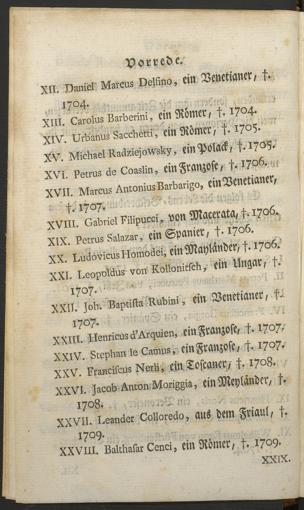 Vorrede.
XII. Daniel Marcus Delfino, ein Venetianer, †.
1704.
XIII. Carolus Barberini, ein Römer, †. 1704.
XIV. Urbanus Sacchetti, ein Römer, †. 1705.
XV. Michael Radziejowsky, ein Polack, †. 1705.
XVI. Petrus de Coaslin, ein Franzose, †. 1706.
XVII. Marcus Antonius Barbarigo, ein Venetianer,
†. 1707.
XVIII. Gabriel Filipucci, von Macerata, †. 1706.
XIX. Petrus Salazar, ein Spanier, †. 1706.
XX. Ludovicus Homodei, ein Mayländer, †. 1706.
XXI. Leopoldus von Kollonitsch, ein Ungar, †.
1707.
XXII. Joh. Baptista Rubini, ein Venetianer, †.
1707.
XXIII. Henricus d'Arquien, ein Franzose, †. 1707.
XXIV. Stephan le Camus, ein Franzose, †. 1707.
XXV. Franciscus Nerli, ein Toscaner, †. 1708.
XXVI. Jacob Anton Moriggia, ein Meyländer, †.
1708.
XXVII. Leander Colloredo, aus dem Friaul, †.
1709.
XXVIII. Balthasar Cenci, ein Römer, †. 1709.
XXIX.